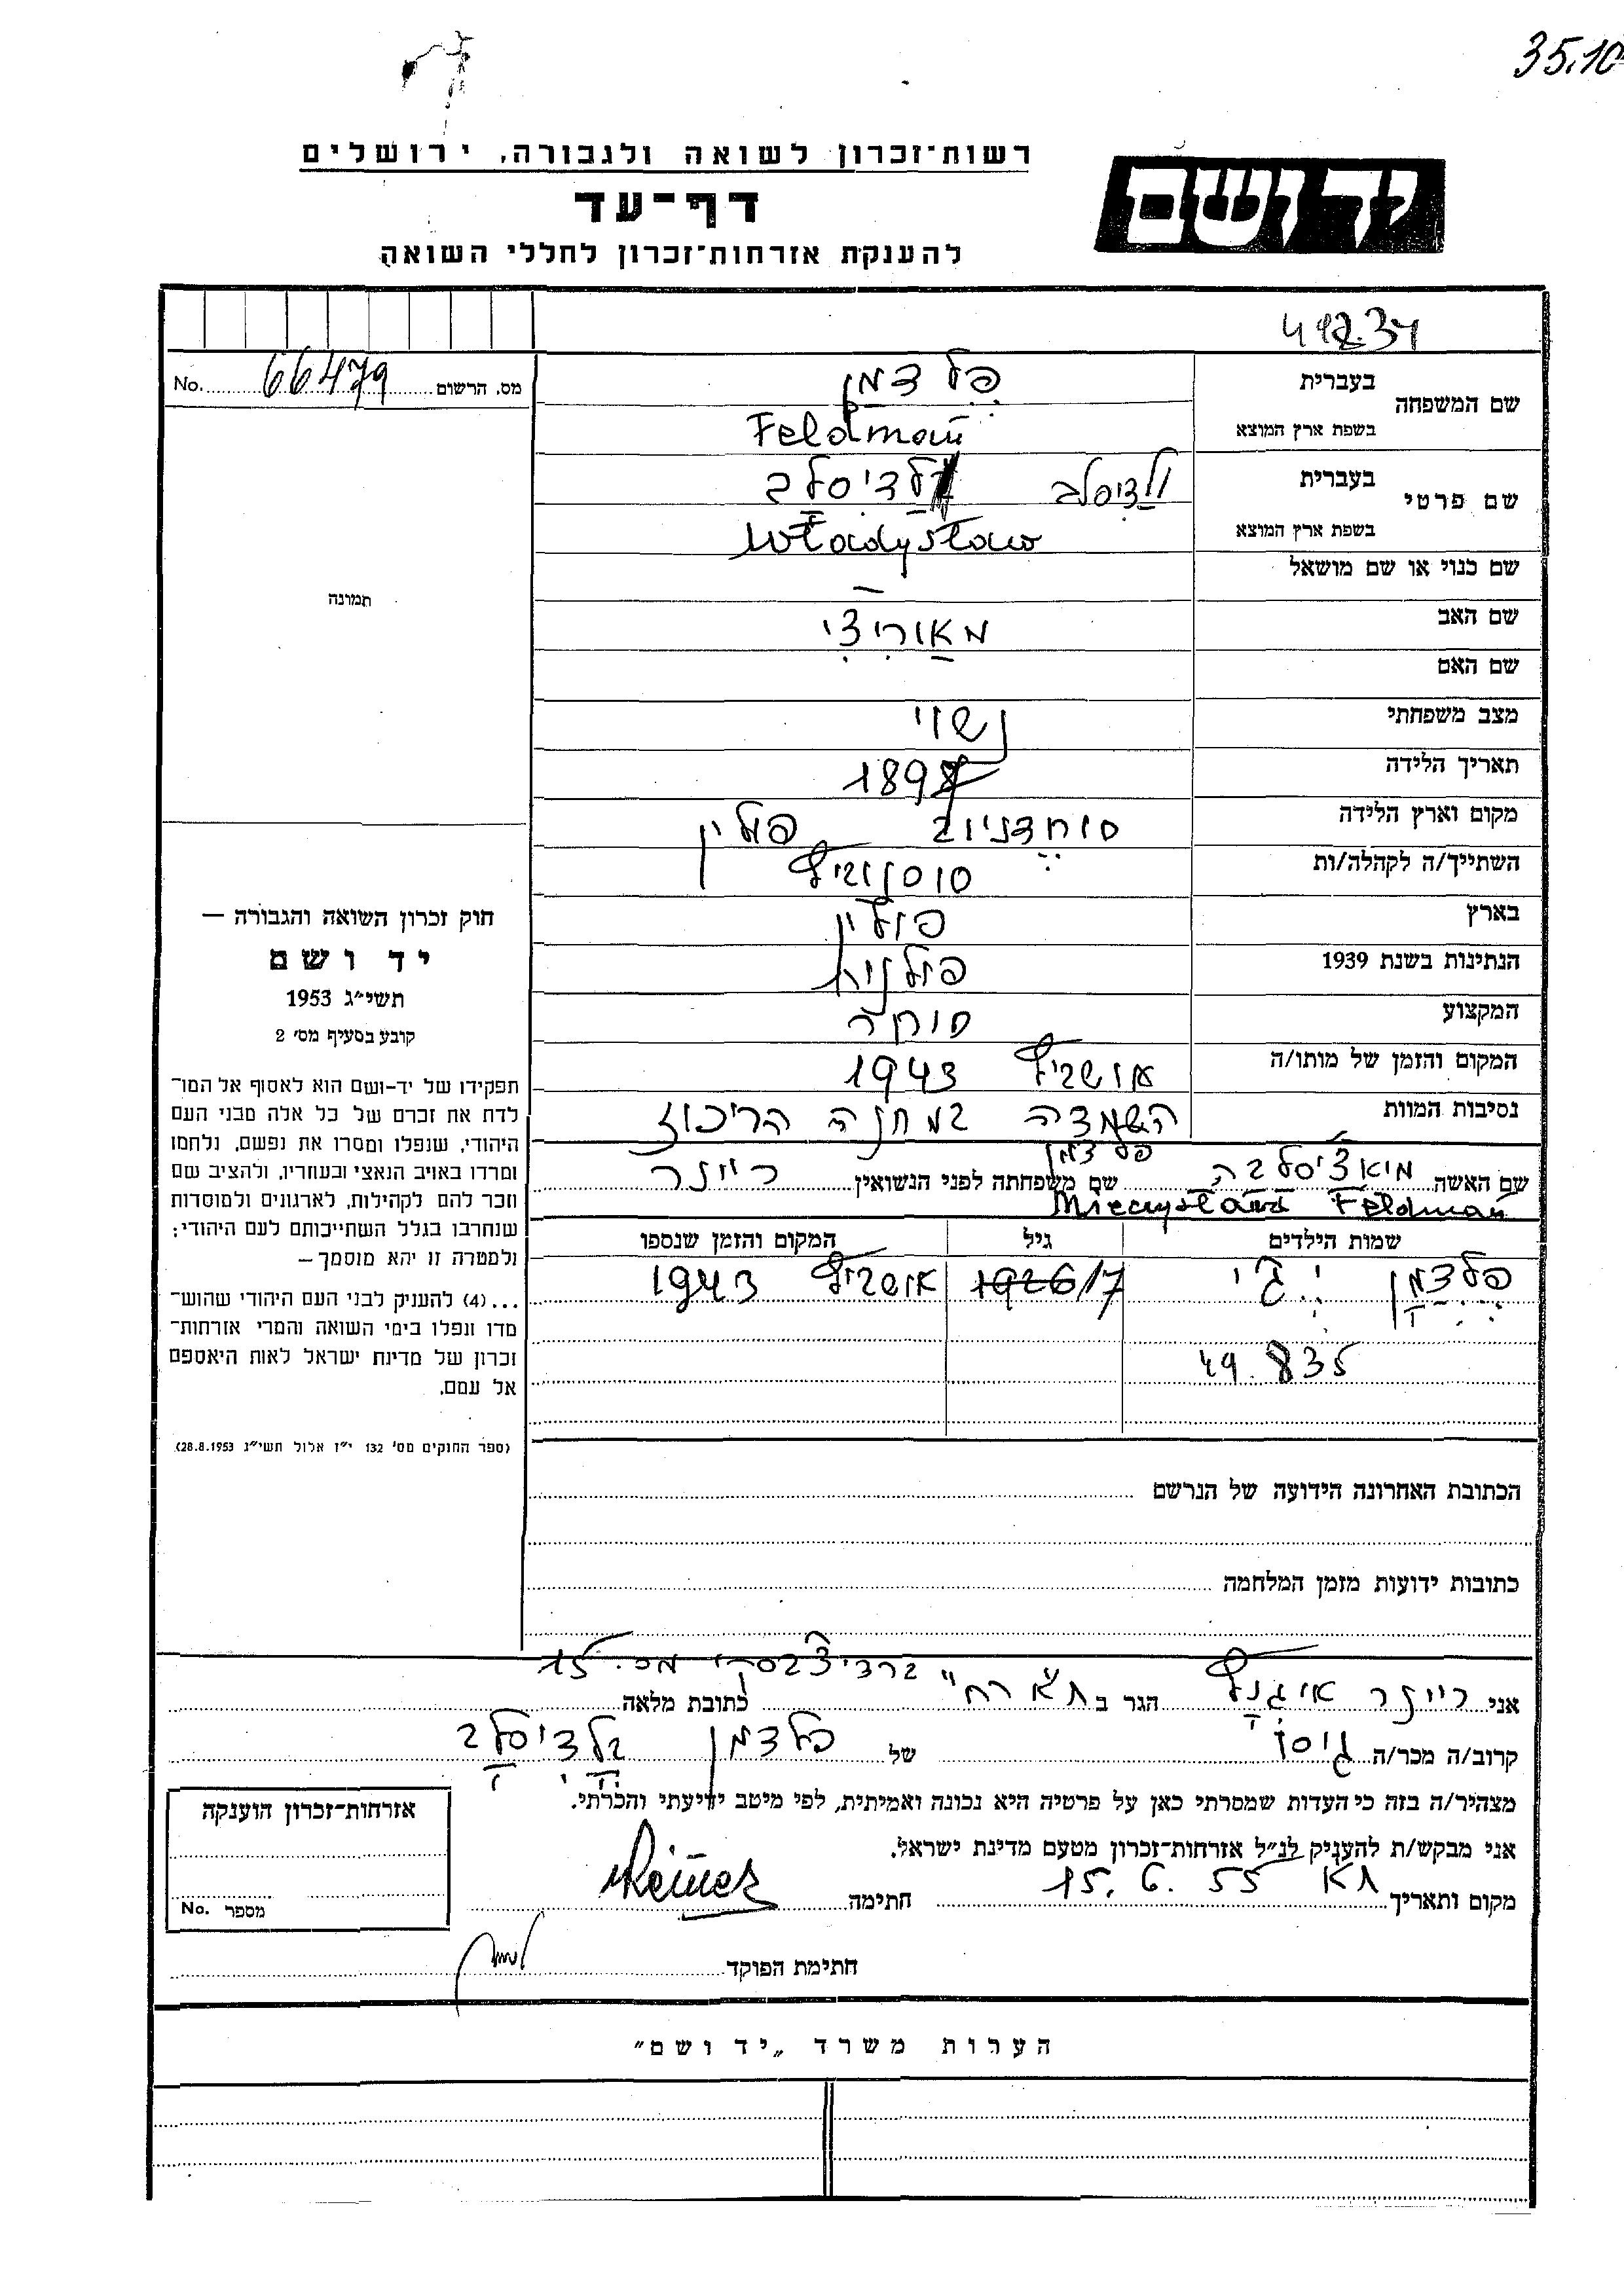 35.10
רשות־זכרון לשואה ולגבורה, ירושלים
יד ושם
דף־עד
להענקת אזרחות־זכרון לחללי השואה
מס. הרשום 66479 No.
שם המשפחה בעברית פלדמן
בשפת ארץ המוצא Feldman
שם פרטי בעברית ולדיסלב ולדיסלב
בשפת ארץ המוצא Władysław
שם כנוי או שם מושאל —
שם האב מאוריצי
שם האם
מצב משפחתי נשוי
תאריך הלידה 1897
מקום וארץ הלידה סוחדניוב פולין
השתייך/ה לקהלה/ות סוסנוביץ
בארץ פולין
הנתינות בשנת 1939 פולנית
המקצוע סוחר
המקום והזמן של מותו/ה אושביץ 1943
נסיבות המוות השמדה במחנה הריכוז
פלדמן
שם האשה מיאצ'יסלבה שם משפחתה לפני הנשואין ריינר
Mieczysława Feldman
שמות הילדים גיל המקום והזמן שנספו
פלדמן יג'י 1926/17 אושביץ 1943
49.835
תמונה
חוק זכרון השואה והגבורה —
יד ושם
תשי״ג 1953
קובע בסעיף מס׳ 2
תפקידו של יד-ושם הוא לאסוף אל המו־
לדת את זכרם של כל אלה מבני העם
היהודי, שנפלו ומסרו את נפשם, נלחמו
ומרדו באויב הנאצי ובעוזריו, ולהציב שם
וזכר להם לקהילות, לארגונים ולמוסדות
שנחרבו בגלל השתייכותם לעם היהודי;
ולמטרה זו יהא מוסמך—
...(4) להעניק לבני העם היהודי שהוש־
מדו ונפלו בימי השואה והמרי אזרחות־
זכרון של מדינת ישראל לאות היאספם
אל עמם.
(ספר החוקים מס׳ 132 י״ז אלול תשי״ג 28.8.1953)
הכתובת האחרונה הידועה של הנרשם
כתובות ידועות מזמן המלחמה
אני ריינר איגנץ הגר ב ת״א רח׳ כתובת מלאה ברדיצ'בסקי מס. 15
קרוב/ה מכר/ה גיסו של פלדמן ולדיסלב
מצהיר/ה בזה כי העדות שמסרתי כאן על פרטיה היא נכונה ואמיתית, לפי מיטב ידיעתי והכרתי.
אני מבקש/ת להעניק לנ״ל אזרחות־זכרון מטעם מדינת ישראל.
מקום ותאריך ת״א 15. 6. 55 חתימה Reiner
חתימת הפוקד
אזרחות־זכרון הוענקה
מספר No.
הערות משרד „יד ושם״